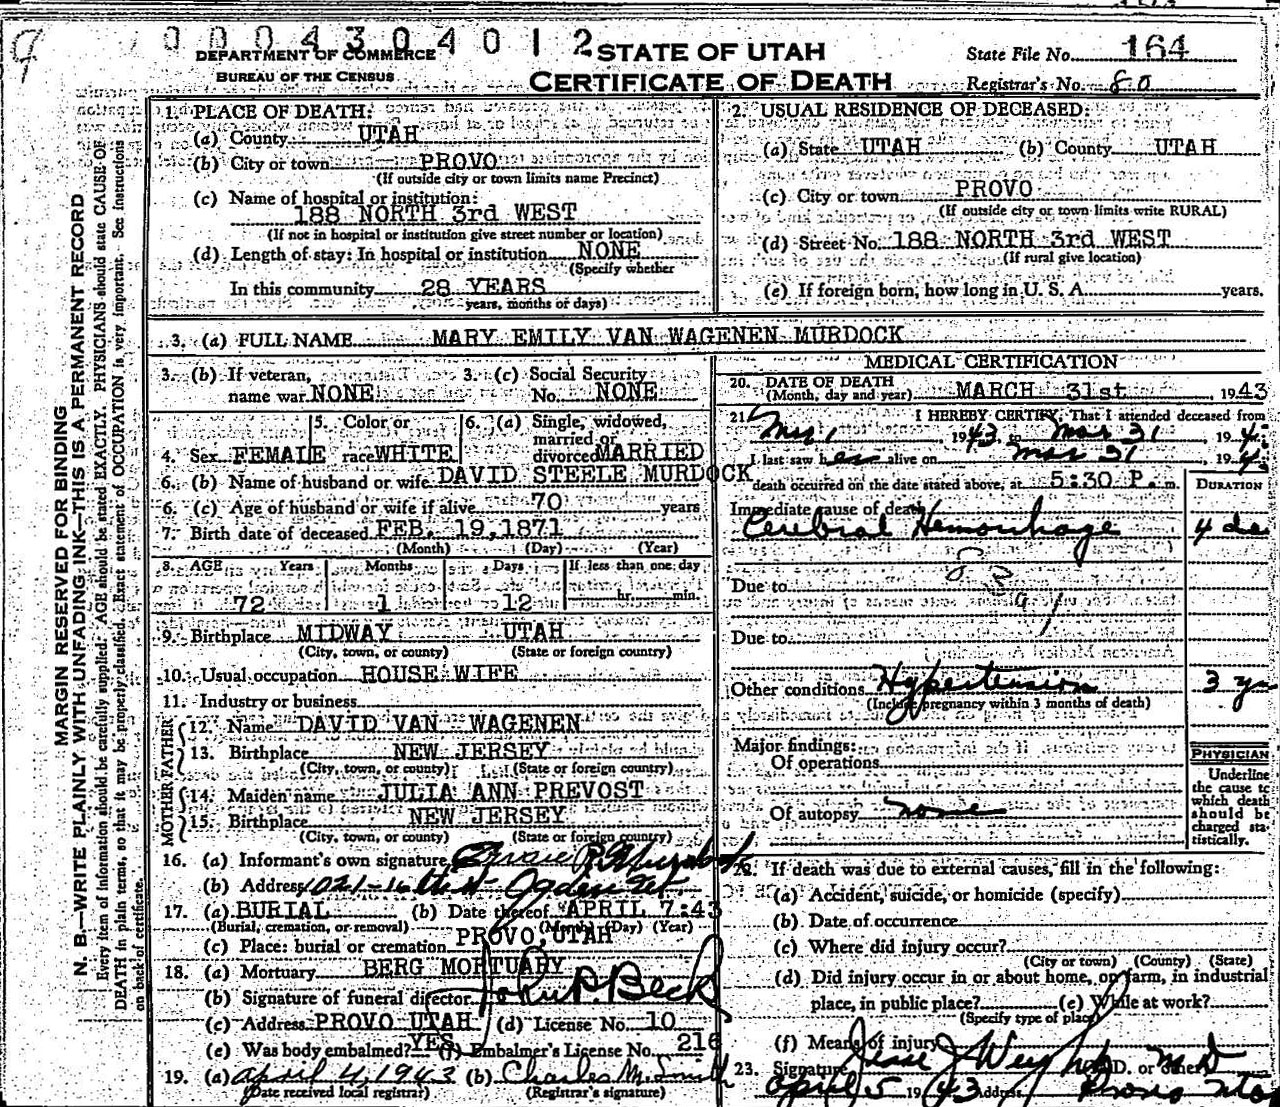 000430401 2
DEPARTMENT OF COMMERCE
BUREAU OF THE CENSUS
STATE OF UTAH
CERTIFICATE OF DEATH
State File No. 164
Registrar's No. 80
MARGIN RESERVED FOR BINDING
N. B.—WRITE PLAINLY WITH UNFADING INK—THIS IS A PERMANENT RECORD
Every item of information should be carefully supplied. AGE should be stated EXACTLY. PHYSICIANS should state CAUSE OF
DEATH in plain terms, so that it may be properly classified. Exact statement of OCCUPATION is very important. See instructions
on back of certificate.
1. PLACE OF DEATH:
(a) County UTAH
(b) City or town PROVO
(If outside city or town limits name Precinct)
(c) Name of hospital or institution:
188 NORTH 3rd WEST
(If not in hospital or institution give street number or location)
(d) Length of stay: In hospital or institution NONE
(Specify whether
In this community 28 YEARS
years, months or days)
2. USUAL RESIDENCE OF DECEASED:
(a) State UTAH (b) County UTAH
(c) City or town PROVO
(If outside city or town limits write RURAL)
(d) Street No. 188 NORTH 3rd WEST
(If rural give location)
(e) If foreign born, how long in U. S. A. years.
3. (a) FULL NAME MARY EMILY VAN WAGENEN MURDOCK
3. (b) If veteran, name war NONE
3. (c) Social Security No. NONE
4. Sex FEMALE
5. Color or race WHITE
6. (a) Single, widowed, married or divorced MARRIED
6. (b) Name of husband or wife DAVID STEELE MURDOCK
6. (c) Age of husband or wife if alive 70 years
7. Birth date of deceased FEB. 19, 1871
(Month) (Day) (Year)
8. AGE Years Months Days If less than one day
72 1 12 hr. min.
9. Birthplace MIDWAY UTAH
(City, town, or county) (State or foreign country)
10. Usual occupation HOUSE WIFE
11. Industry or business
FATHER
12. Name DAVID VAN WAGENEN
13. Birthplace NEW JERSEY
(City, town, or county) (State or foreign country)
MOTHER
14. Maiden name JULIA ANN PREVOST
15. Birthplace NEW JERSEY
(City, town, or county) (State or foreign country)
16. (a) Informant's own signature
(b) Address 1021-16th st Ogden Ut.
17. (a) BURIAL (b) Date thereof APRIL 7:43
(Burial, cremation, or removal) (Month) (Day) (Year)
(c) Place: burial or cremation PROVO, UTAH
18. (a) Mortuary BERG MORTUARY
(b) Signature of funeral director
(c) Address PROVO UTAH (d) License No. 10
(e) Was body embalmed? YES (f) Embalmer's License No. 216
19. (a) April 4, 1943 (b) Charles M. Smith
(Date received local registrar) (Registrar's signature)
MEDICAL CERTIFICATION
20. DATE OF DEATH
(Month, day and year) MARCH 31st, 1943
21. I HEREBY CERTIFY, That I attended deceased from
1943, to Mar 31, 194
I last saw her alive on Mar 31, 194
death occurred on the date stated above, at 5:30 P. m.
DURATION
Immediate cause of death
Cerebral Hemorrhage 4 da
83a1
Due to
Due to
Other conditions Hypertension 3 yr
(Include pregnancy within 3 months of death)
Major findings:
Of operations
Of autopsy none
PHYSICIAN
Underline
the cause to
which death
should be
charged sta-
tistically.
22. If death was due to external causes, fill in the following:
(a) Accident, suicide, or homicide (specify)
(b) Date of occurrence
(c) Where did injury occur?
(City or town) (County) (State)
(d) Did injury occur in or about home, on farm, in industrial
place, in public place? (e) While at work?
(Specify type of place)
(f) Means of injury
23. Signature Jesse J Weight M.D. or other M D
April 5 1943 Address Provo Utah